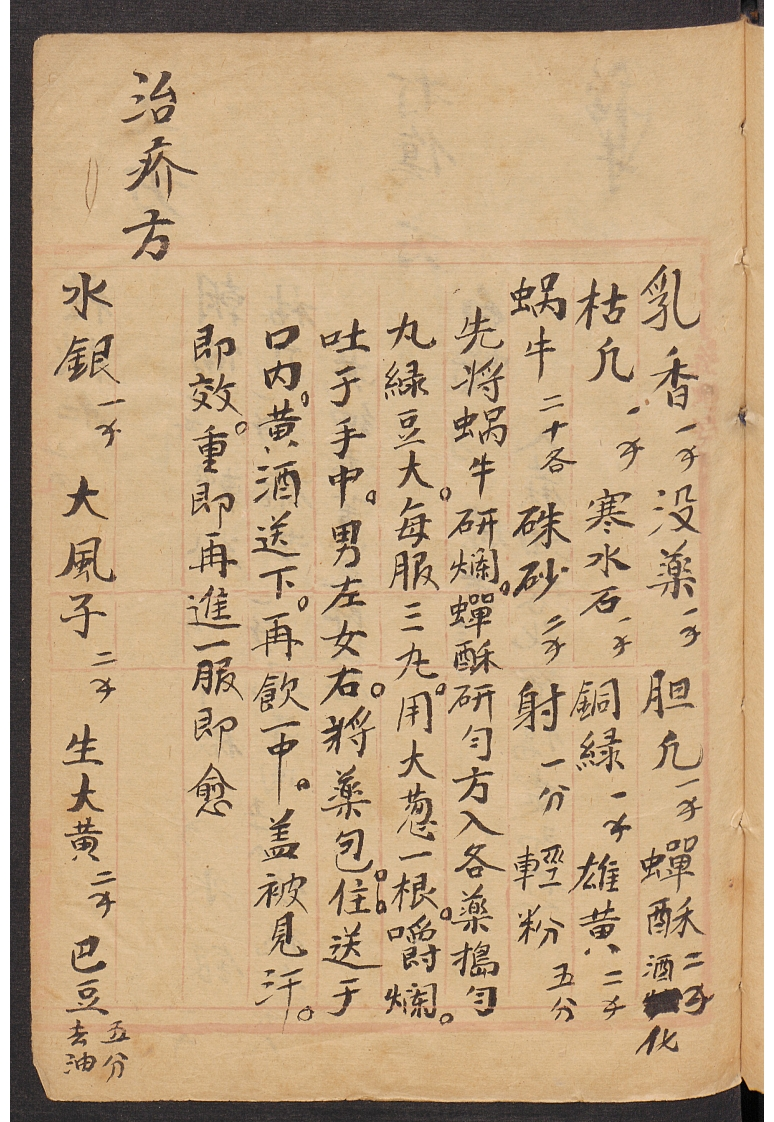 乳香一錢没薬一錢胆凡一錢蟬酥二錢酒化
枯凡一錢寒水石一錢銅緑一錢雄黄二錢
蜗牛二十各硃砂二錢射一分輕粉五分
先將蜗牛研爛。蟬酥研匀方入各薬搗匀
丸緑豆大。每服三丸。用大葱一根。嚼爛。
吐于手中。男左女右。將薬包住。送于
口内。黄酒送下。再飲一中。盖被見汗。
即效。重即再進一服即愈
治疥方
水銀一錢大風子二錢生大黄二錢巴豆五分去油